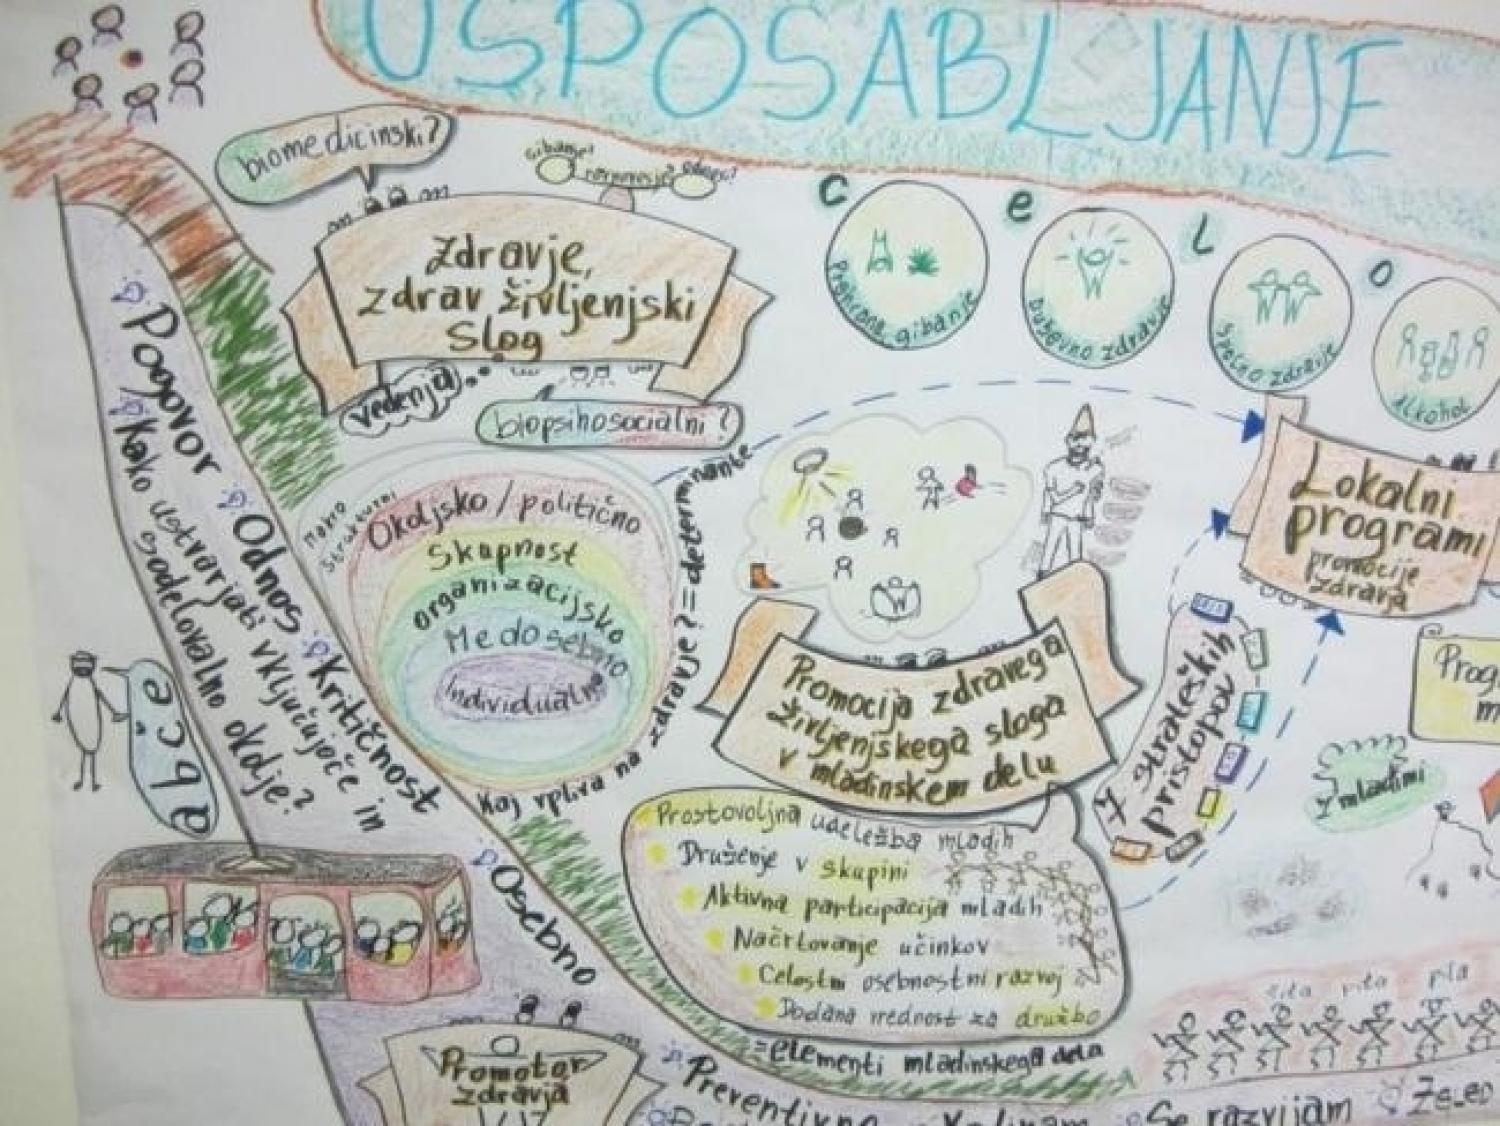 USPOSABLJANJE
biomedicinski?
Gibanje?
odnosi?
Zdravje,
zdrav življenjski
slog
vedenja...
biopsihosocialni?
C e L o
Prehrana, gibanje
Duševno zdravje
Spolno zdravje
alkohol
Pogovor
Kako ustvarjati vključujoče in
sodelovalno okolje?
Odnos
Kritičnost
Osebno
ečba
Makro
strukturni
Okoljsko / politično
Skupnost
organizacijsko
Medosebno
Individualno
Kaj vpliva na zdravje? = determinante
Lokalni
programi
promocije
zdravja
Promocija zdravega
življenjskega sloga
v mladinskem delu
7 strateških
pristopov
Prog
m
z mladimi
Prostovoljna udeležba mladih
Druženje v skupini
Aktivna participacija mladih
Načrtovanje učinkov
Celostni osebnostni razvoj
Dodana vrednost za družbo
= elementi mladinskega dela
Promotor
zdravja
Preventivno
Se razvijam